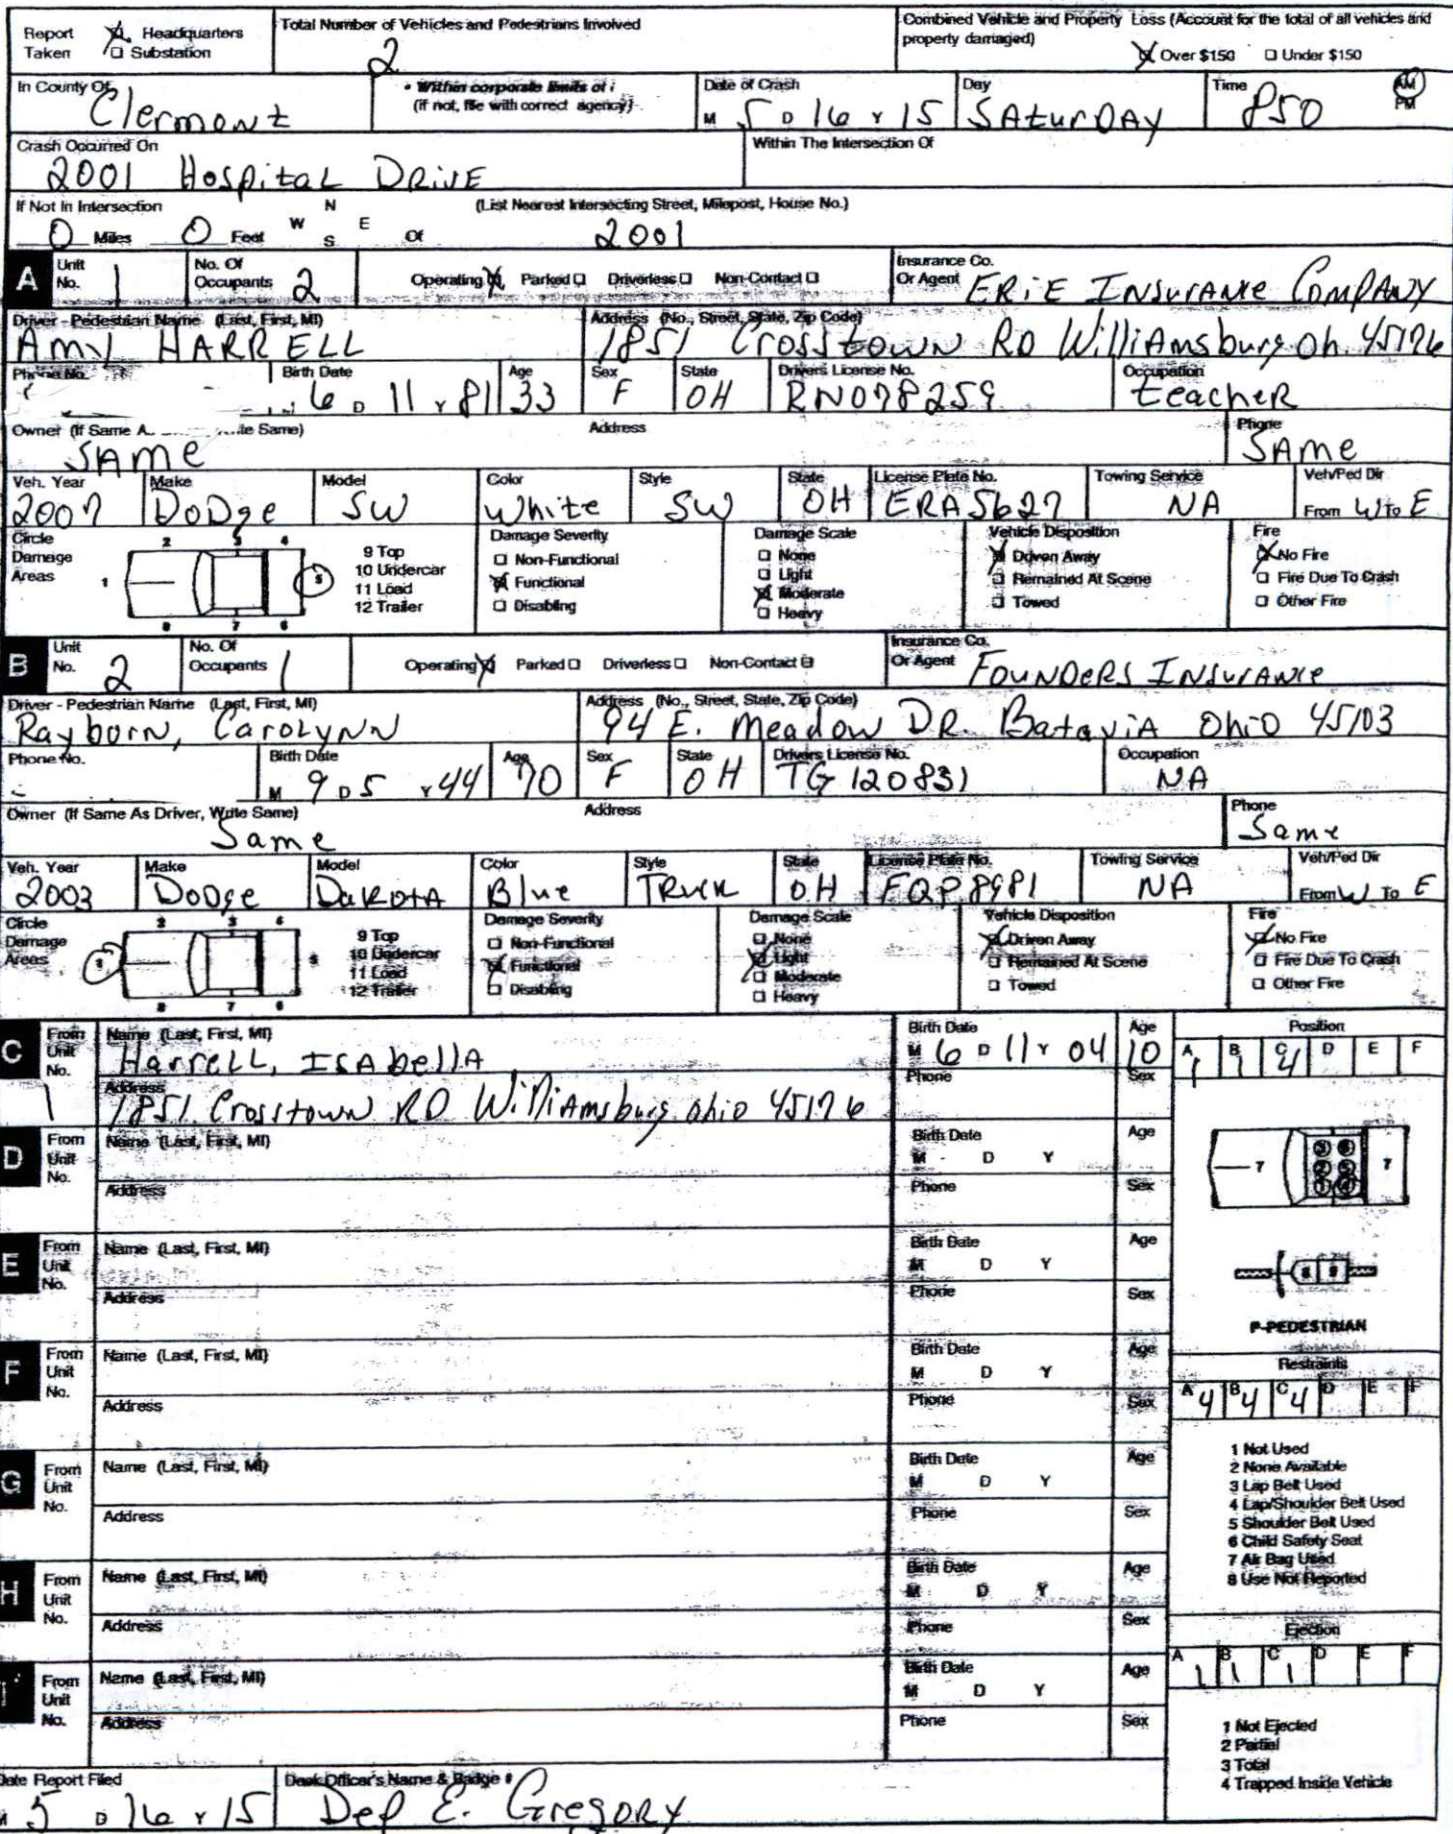 Report Taken Headquarters Substation
Total Number of Vehicles and Pedestrians Involved
2
Combined Vehicle and Property Loss (Account for the total of all vehicles and property damaged)
Over $150 Under $150
In County Of Clermont
Within corporate limits of :
(if not, file with correct agency)
Date of Crash
M 5 D 16 Y 15
Day SAturDAY
Time 850 AM PM
Crash Occurred On
2001 Hospital DRIVE
Within The Intersection Of
If Not In Intersection N (List Nearest Intersecting Street, Milepost, House No.)
0 Miles 0 Feet W E S Of 2001
A Unit No. 1 No. Of Occupants 2 Operating Parked Driverless Non-Contact
Insurance Co. Or Agent ERIE INSURANCE COMPANY
Driver - Pedestrian Name (Last, First, MI)
AMY HARRELL
Address (No., Street, State, Zip Code)
1851 Crosstown RD WilliAmsburg Oh. 45176
Phone No. Birth Date 6 D 11 Y 81 Age 33 Sex F State OH Drivers License No. RN078259 Occupation teacheR
Owner (If Same A Same) Address Phone
SAme SAme
Veh. Year 2007 Make DoDge Model SW Color White Style SW State OH License Plate No. ERA5627 Towing Service NA Veh/Ped Dir From W to E
Circle Damage Areas 1 2 3 4 5 6 7 8
9 Top
10 Undercar
11 Load
12 Trailer
Damage Severity
Non-Functional
Functional
Disabling
Damage Scale
None
Light
Moderate
Heavy
Vehicle Disposition
Driven Away
Remained At Scene
Towed
Fire
No Fire
Fire Due To Crash
Other Fire
B Unit No. 2 No. Of Occupants 1 Operating Parked Driverless Non-Contact
Insurance Co. Or Agent FOUNDERS INSURANCE
Driver - Pedestrian Name (Last, First, MI)
Rayburn, CAROLYNN
Address (No., Street, State, Zip Code)
94 E. Meadow DR. BataviA Ohio 45103
Phone No. Birth Date M 9 D 5 Y 44 Age 70 Sex F State OH Drivers License No. TG120831 Occupation NA
Owner (If Same As Driver, Write Same) Address Phone
Same Same
Veh. Year 2003 Make Dodge Model DaKOtA Color Blue Style TRUCK State OH License Plate No. FQP8981 Towing Service NA Veh/Ped Dir From W To E
Circle Damage Areas 2 3 4 6 7 8
9 Top
10 Undercar
11 Load
12 Trailer
Damage Severity
Non-Functional
Functional
Disabling
Damage Scale
None
Light
Moderate
Heavy
Vehicle Disposition
Driven Away
Remained At Scene
Towed
Fire
No Fire
Fire Due To Crash
Other Fire
C From Unit No. 1 Name (Last, First, MI)
HarrELL, ISAbellA
Birth Date M 6 D 11 Y 04 Age 10
Address Phone Sex
1851 Crosstown RD WilliAmsburg ohio 45176
Position
A 1 B 1 C 4 D E F
7 7
P-PEDESTRIAN
D From Unit No. Name (Last, First, MI) Birth Date M D Y Age
Address Phone Sex
E From Unit No. Name (Last, First, MI) Birth Date M D Y Age
Address Phone Sex
F From Unit No. Name (Last, First, MI) Birth Date M D Y Age
Address Phone Sex
Restraints
A 4 B 4 C 4 D E F
1 Not Used
2 None Available
3 Lap Belt Used
4 Lap/Shoulder Belt Used
5 Shoulder Belt Used
6 Child Safety Seat
7 Air Bag Used
8 Use Not Reported
G From Unit No. Name (Last, First, MI) Birth Date M D Y Age
Address Phone Sex
H From Unit No. Name (Last, First, MI) Birth Date M D Y Age
Address Phone Sex
Ejection
A 1 B 1 C 1 D E F
1 Not Ejected
2 Partial
3 Total
4 Trapped Inside Vehicle
From Unit No. Name (Last, First, MI) Birth Date M D Y Age
Address Phone Sex
Date Report Filed 5 D 16 Y 15
Desk Officer's Name & Badge # Dep E. Gregory